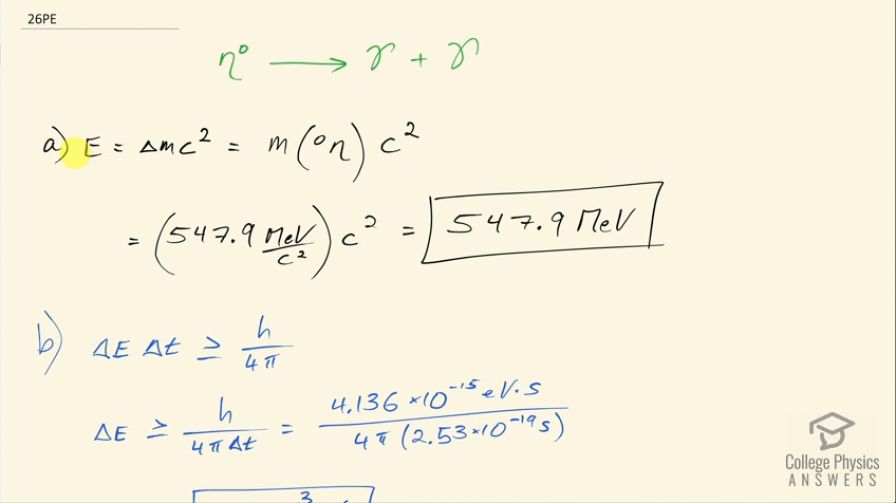 26PE
η⁰ → γ + γ
a) E = Δmc² = m(⁰η)c²
= (547.9 MeV/c²)c² = 547.9 MeV
b) ΔE Δt ≥ h/4π
ΔE ≥ h/4πΔt = 4.136×10⁻¹⁵ eV·s/4π(2.53×10⁻¹⁹s)
3
College Physics
ANSWERS